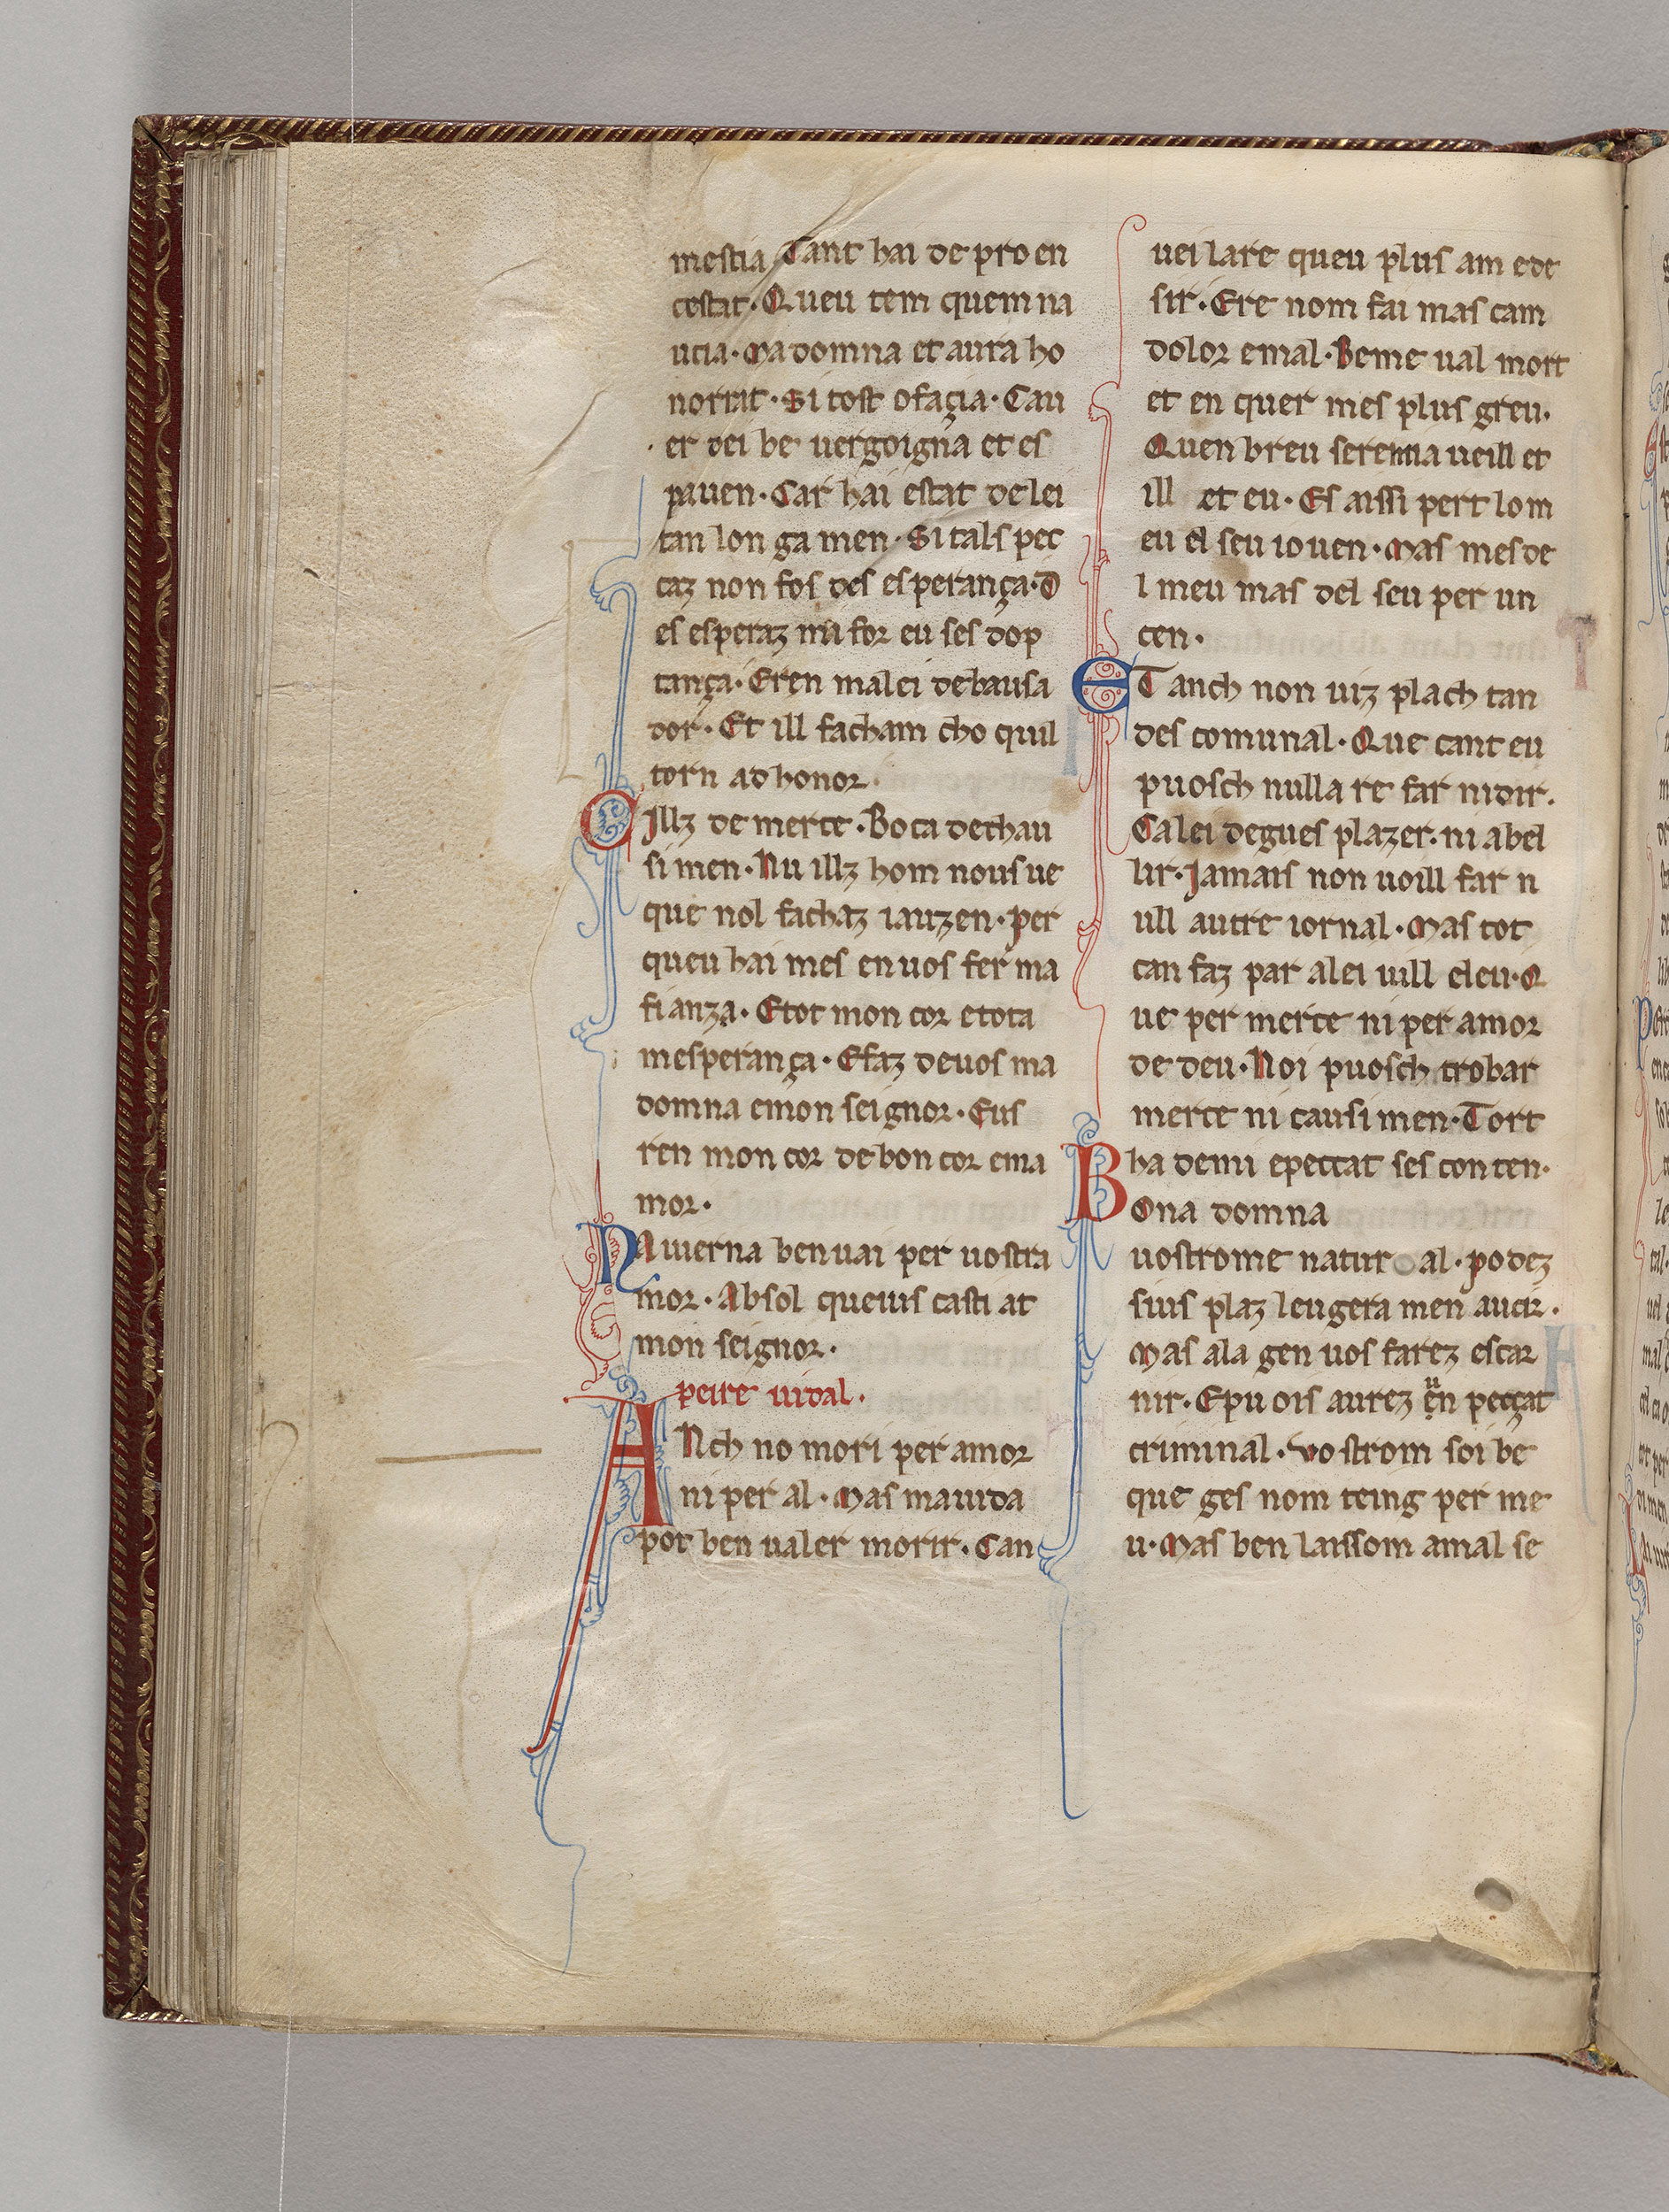 mestia Tant hai de pro en
costat· Queu tem quem na
ucia· Ma domna et aura ho
norrat· Si tost ofaçia· Cau
er dei be uergoigna et es
pauen· Car hai estat de lei
tan lon ga men· Si tals pec
caz non fos des esperança· D
es esperaz mi for eu ses dop
tança· Eren mal ei de bausa
dor· Et ill facham cho quil
torn ad honor·
Cillz de merce· Boca de chau
si men· Nu illz hom nous ue
que nol fachaz iauzen· per
queu hai mes en uos fer ma
fianza· E tot mon cor e tota
mesperança· E faz de uos ma
domna e mon seignor· E us
ren mon cor de bon cor e ma
mor·
NA uierna ben uai per uostra
mor· Absol queuis casti at
mon seignor·
peire uidal·
ANch no mori per amor
ni per al· Mas ma uida
pot ben ualer morir· Can
uei la re queu plus am e de
sir· Ere nom fai mas cam
dolor e mal· Be me ual mort
et en quer mes plus greu·
Quen breu serema ueill et
ill et eu· Es aissi pert lo m
eu el seu iouen· Mas mes de
l meu mas del seu per un
cen·
ET anch non uiz plach tan
des comunal· Que cant eu
puosch nulla re far ni dir·
Ca lei degues plazer· ni abel
lir· Jamais non uoill far n
ull autre iornal· Mas tot
can faz par a lei uill eleu· Q
ue per merce ni per amor
de deu· Noi puosch trobar
merce ni causi men· Tort
ha de mi e peccat ses conten·
BOna domna
uostrome natur al· podez
sius plaz leugera men aucir·
Mas a la gen uos farez escar
nir· E puois aurez en peccat
criminal· Vostrom soi be
que ges nom teing per me
u· Mas ben laissom a mal se